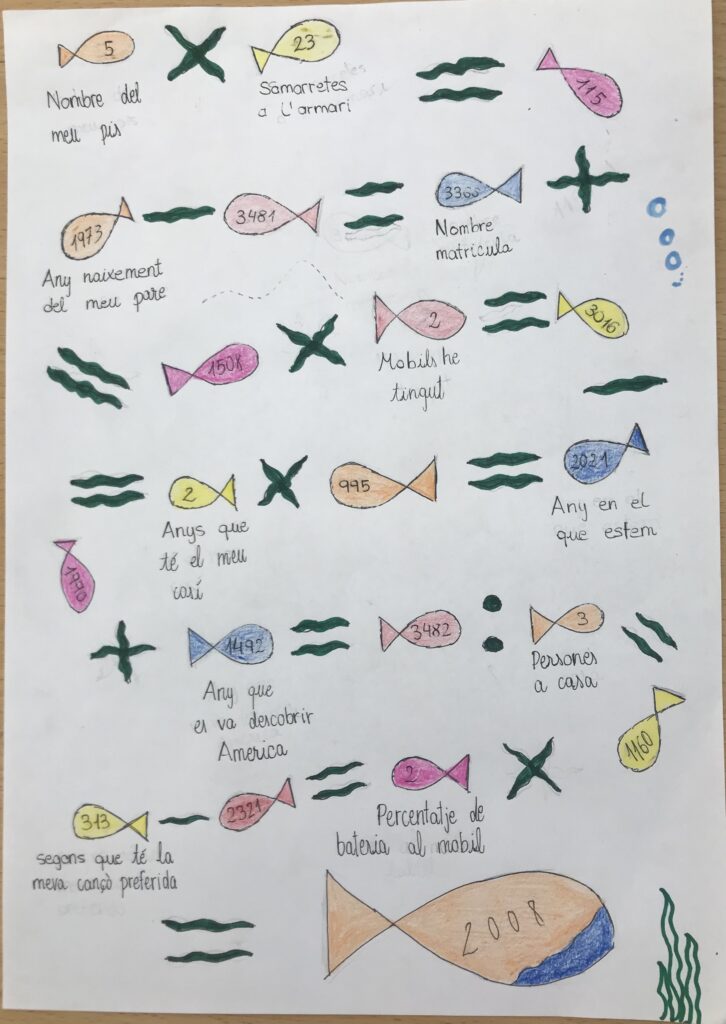 5 × 23 = 115
Nombre del
meu pis
Samarretes
a l'armari
1973 - 3481 = 3366 +
Any naixement
del meu pare
Nombre
matricula
= 1508 × 2 = 3016
Mobils he
tingut
-
= 2 × 995 = 2021
Anys que
té el meu
cosí
Any en el
que estem
1990
+ 1492 = 3482 : 3 =
Any que
es va descobrir
America
Persones
a casa
1160
313 - 2321 = 2 ×
segons que té la
meva cançò preferida
Percentatje de
bateria al mobil
= 2008